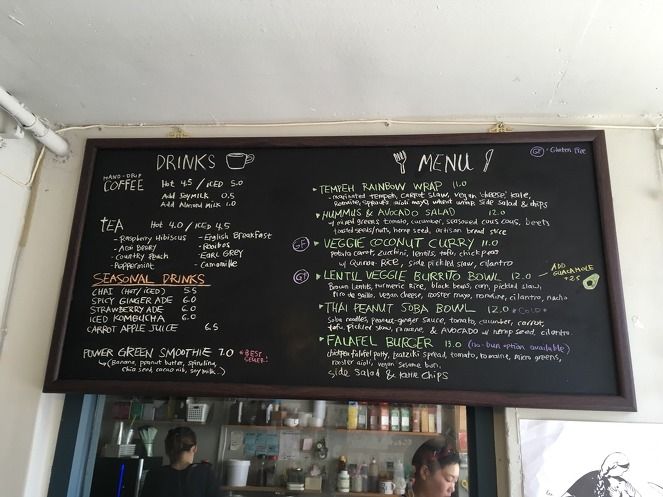 DRINKS
HAND-DRIP
COFFEE
Hot 4.5 / ICED 5.0
Add Soymilk 0.5
Add Almond Milk 1.0
TEA
Hot 4.0 / ICED 4.5
- Raspberry Hibiscus
- Acai Berry
- Country Peach
- Peppermint
- English Breakfast
- Rooibos
- EARL GREY
- Camomille
SEASONAL DRINKS
CHAI (HOT/ICED) 5.5
SPICY GINGER ADE 6.0
STRAWBERRY ADE 6.0
ICED KOMBUCHA 6.0
CARROT APPLE JUICE 6.5
POWER GREEN SMOOTHIE 7.0
*BEST SELLER!
(Banana, peanut butter, spirulina,
chia seed, cacao nib, soy milk..)
MENU
GF - Gluten Free
TEMPEH RAINBOW WRAP 11.0
- marinated tempeh, carrot slaw, vegan "cheese" kale,
romaine, sprouts, aioli mayo, wheat wrap, side salad & chips
HUMMUS & AVOCADO SALAD 12.0
w/ mixed greens, tomato, cucumber, seasoned cous cous, beets
toasted seeds/nuts, hemp seed, artisan bread slice
GF VEGGIE COCONUT CURRY 11.0
potato, carrot, zucchini, lentils, tofu, chick peas
w/ Quinoa Rice, side pickled slaw, cilantro
GF LENTIL VEGGIE BURRITO BOWL 12.0
ADD
GUACAMOLE
+2.5
Brown lentils, turmeric rice, black beans, corn, pickled slaw,
Pico de gallo, vegan cheese, rooster mayo, romaine, cilantro, nacho
THAI PEANUT SOBA BOWL 12.0 *COLD*
Soba noodles, peanut-ginger sauce, tomato, cucumber, carrot,
tofu, pickled slaw, romaine, & AVOCADO w/ hemp seed, cilantro.
FALAFEL BURGER 13.0 (no-bun option available)
chickpea falafel patty, tzatziki spread, tomato, romaine, micro greens,
rooster aioli, vegan sesame bun.
side salad & kale chips